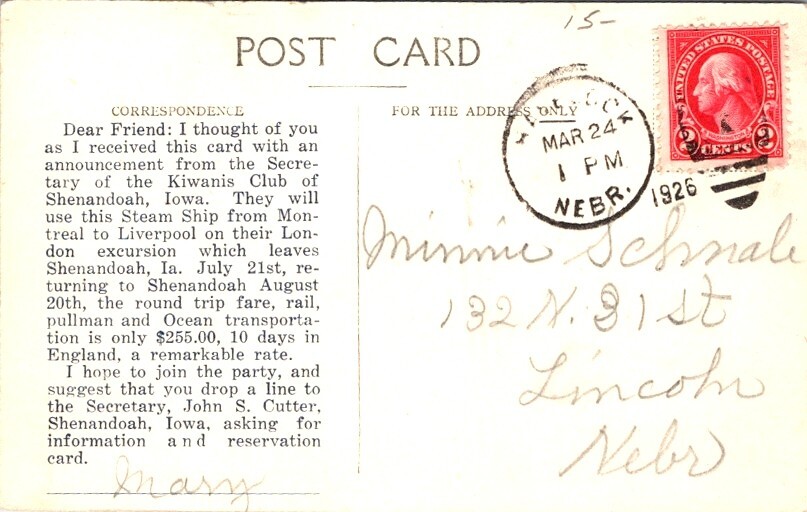 15-
POST CARD
CORRESPONDENCE
Dear Friend: I thought of you
as I received this card with an
announcement from the Secre-
tary of the Kiwanis Club of
Shenandoah, Iowa. They will
use this Steam Ship from Mon-
treal to Liverpool on their Lon-
don excursion which leaves
Shenandoah, Ia. July 21st, re-
turning to Shenandoah August
20th, the round trip fare, rail,
pullman and Ocean transporta-
tion is only $255.00, 10 days in
England, a remarkable rate.
I hope to join the party, and
suggest that you drop a line to
the Secretary, John S. Cutter,
Shenandoah, Iowa, asking for
information and reservation
card.
Mary
FOR THE ADDRESS ONLY
MAR 24
1 PM
NEBR.
1926
UNITED STATES POSTAGE
2 CENTS 2
Minnie Schnale
132 N. 31 St
Lincoln
Nebr